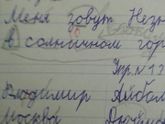 Меня зовут Незн
В солнечном гор
Упр. №
Владимир Айбол
Москва